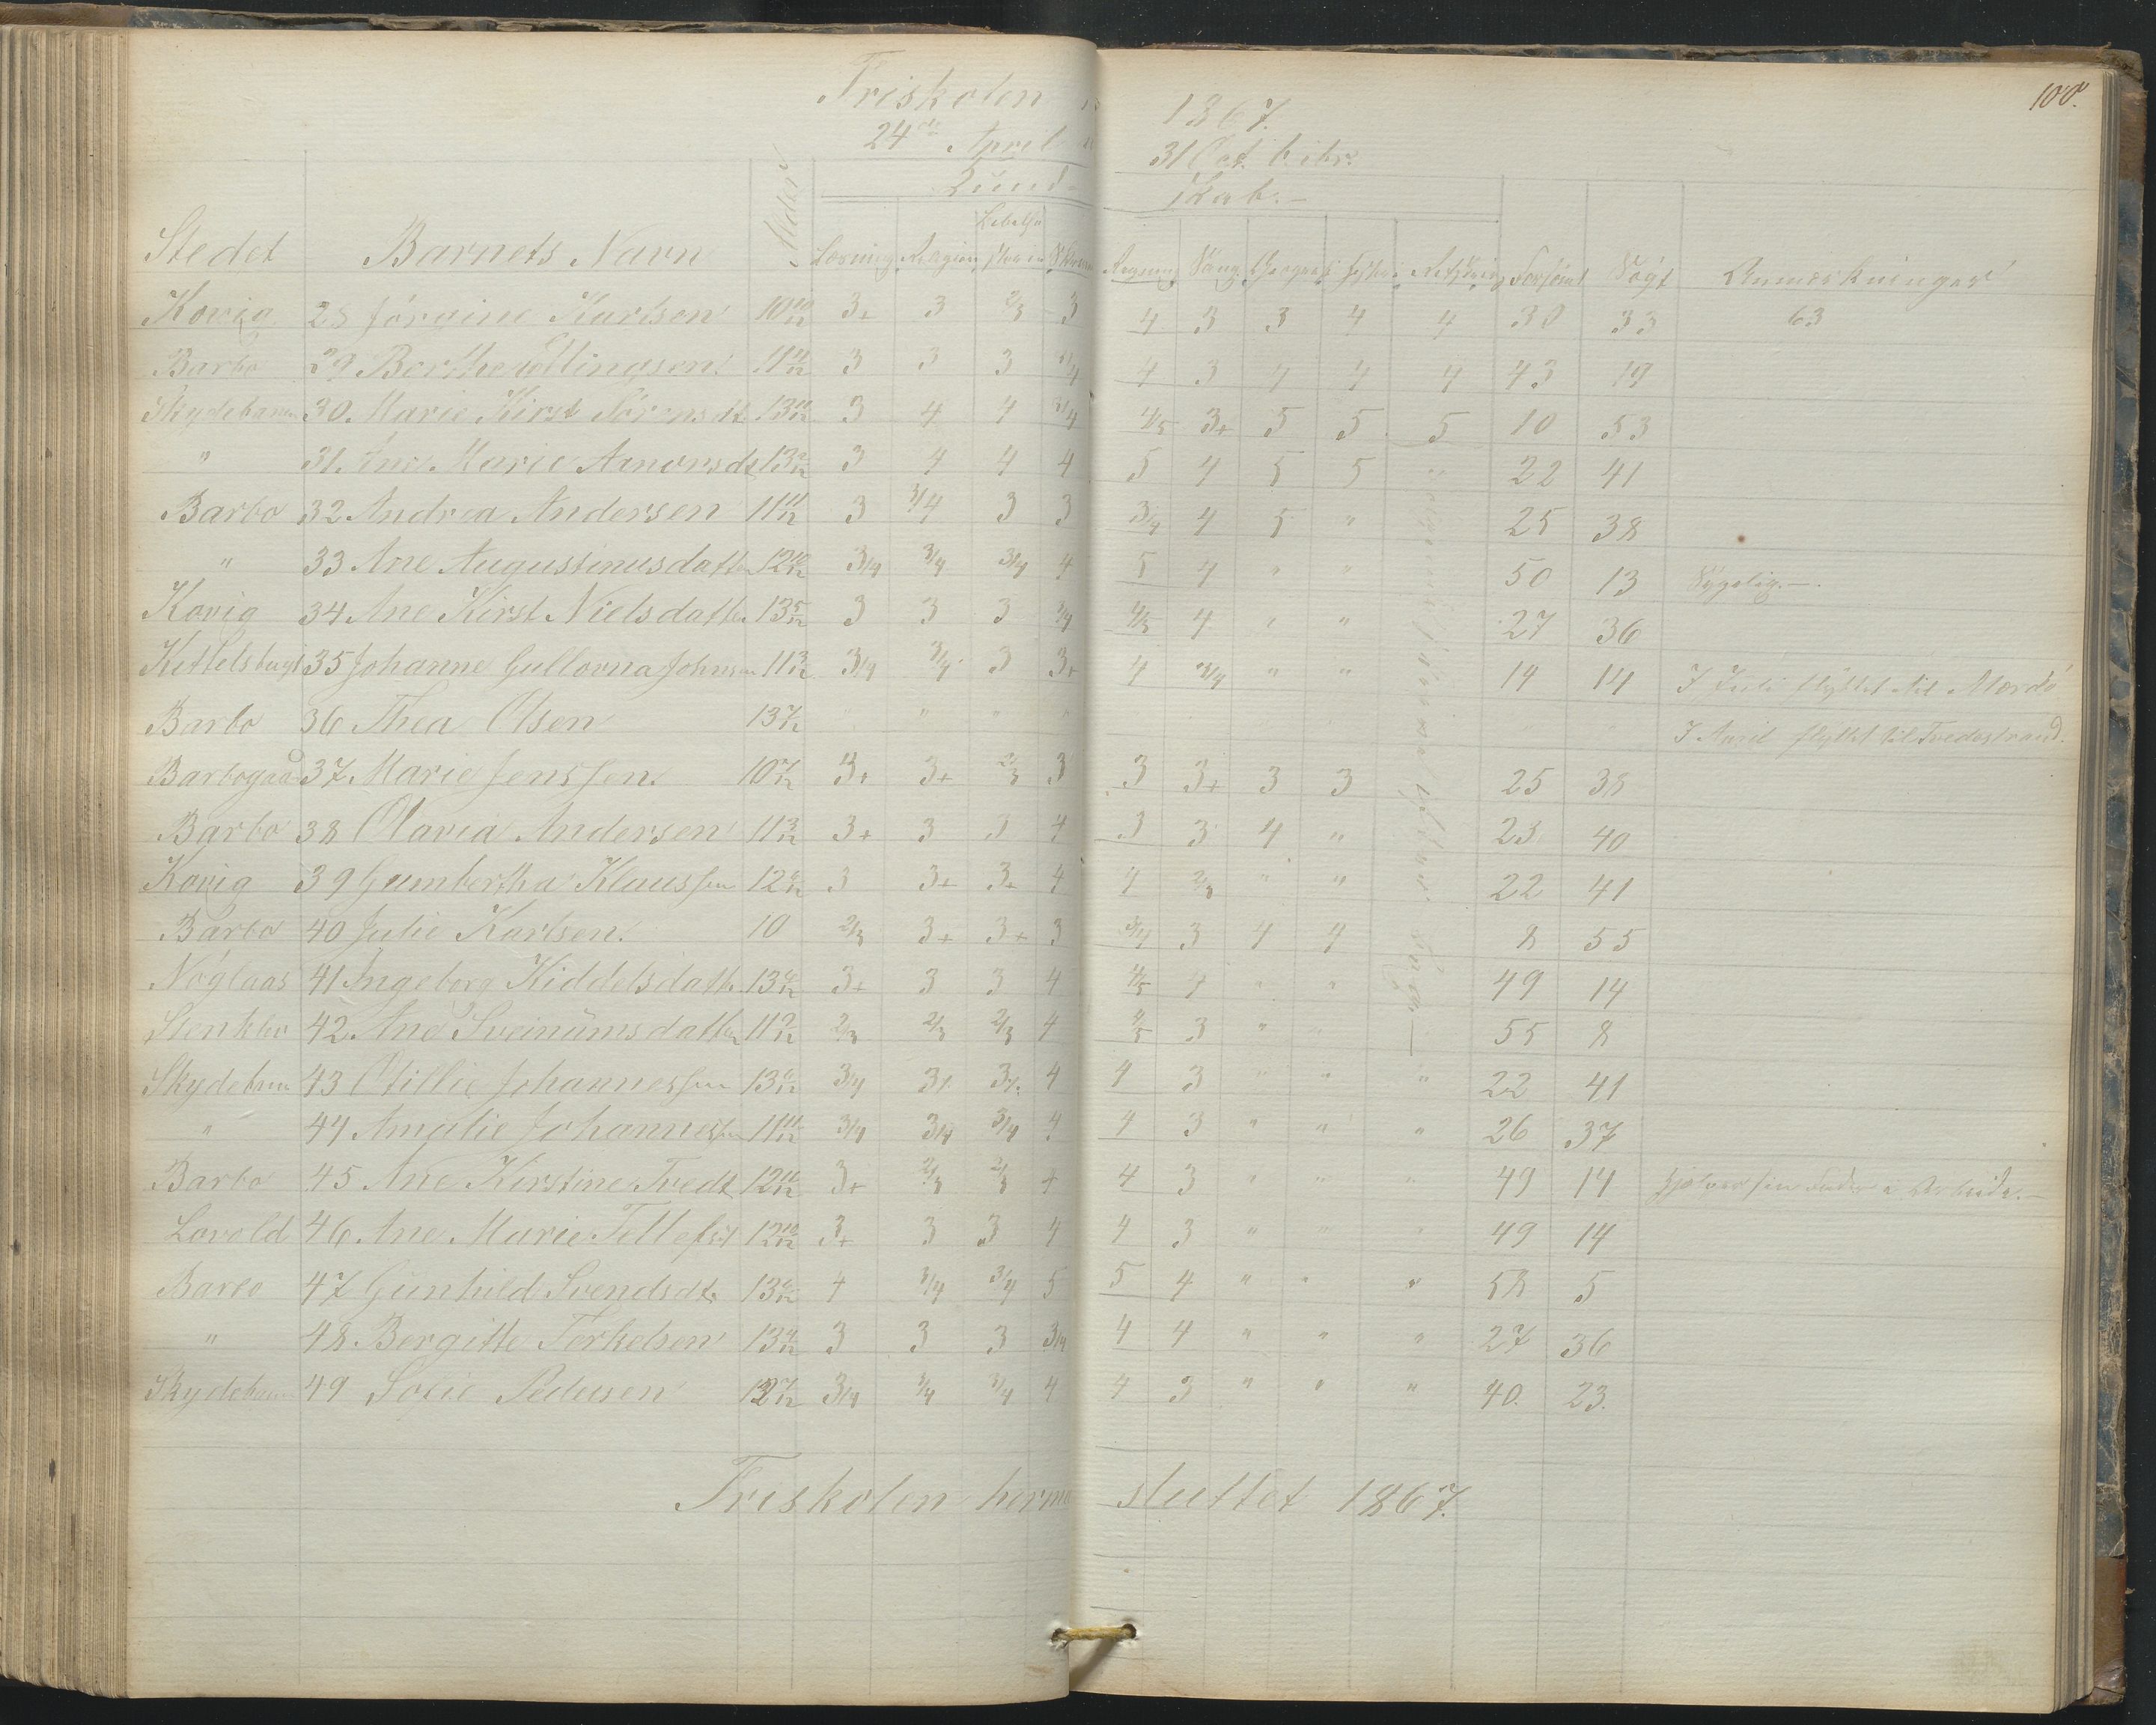 100.
Friskolen 1867.
24de April 31 Oct. b. ibr.
Kund- skab.-
Stedet Barnets Navn Alder Læsning Religion Bibelhi storie Regning Sang Geografi Forsømt Søgt Anmærkninger
Kovig 28 Jörgine Karlsen 10 10/12 3+ 3 2/3 3 4 3 3 4 4 30 33 63
Barbo 29 Berthe Ellingsen 11 11/12 3 3 3 3/4 4 3 4 4 4 43 19
Skydebanen 30. Marie Kirst Sörensdt. 13 3 4 4 3/4 4/5 3+ 5 5 5 10 53
" 31. Ane Marie Amorsdt 13 3 4 4 4 5 4 5 5 " 22 41
Barbo 32 Andrea Andersen 11 11/12 3 3/4 3 3 3/4 4 5 " 25 38
" 33 Ane Augustinusdatter 12 10/12 3/4 3/4 3/4 4 5 4 " " 50 13 Sÿgelig.-
Kovig 34 Ane Kirst Nielsdatter 13 5/12 3 3 3 3/4 4/5 4 " " 27 36
Kittelsbugt 35 Johanne Gullovna Johnsen 11 3/12 3/4 3/4 3 3+ 4 3/4 " " 14 14 I Juli flÿttet til Merdö
Barbo 36 Thea Olsen 13 7/12 " " " " I April flÿttet til Tvedestrand.
Barbogaard 37. Marie Jenssen. 10 7/12 3+ 3+ 2/3 3 3 3+ 3 3 25 38
Barbo 38 Olavia Andersen 11 3/12 3+ 3 3 4 3 3 4 " 23 40
Kovig 39 Gumbertha Klaussen 12 3 3+ 3+ 4 4 2/3 " " 22 41
Barbo 40 Julie Karlsen. 10 2/3 3+ 3+ 3 3/4 3 4 4 8 55
Nöglaas 41 Ingeborg Kiddelsdatter 13 3+ 3 3 4 4/5 4 " " 49 14
Stenklev 42. Ane Sveinümsdatter 11 9/12 2/3 2/3 2/3 4 4/5 3 " " 55 8
Skydebanen 43 Otillie Johannessen 13 3/4 3/4 4 4 3 " " " 22 41
" 44 Amalie Johannessen 11 11/12 3/4 3/4 3/4 4 4 3 " " " 26 37
Barbo 45 Ane Kirstine Tvedt 12 11/12 3+ 2/3 2/3 4 4 3 " " " 49 14 hjælper sin i Arbeide.-
Lovold 46. Ane Marie Tellefsd 12 10/12 3+ 3 3 4 4 3 " " " 49 14
Barbo 47 Gunhild Svendsdt. 13 4 3/4 3/4 5 5 4 " " " 58 5
" 48. Bergitte Terkelsen 13 4/12 3 3 3 3/4 4 4 " " " 27 36
Skydebanen 49 Sofie Pedersen 12 7/12 3/4 3/4 3/4 4 4 3 " " " 40. 23.
Friskolen herme sluttet 1867.